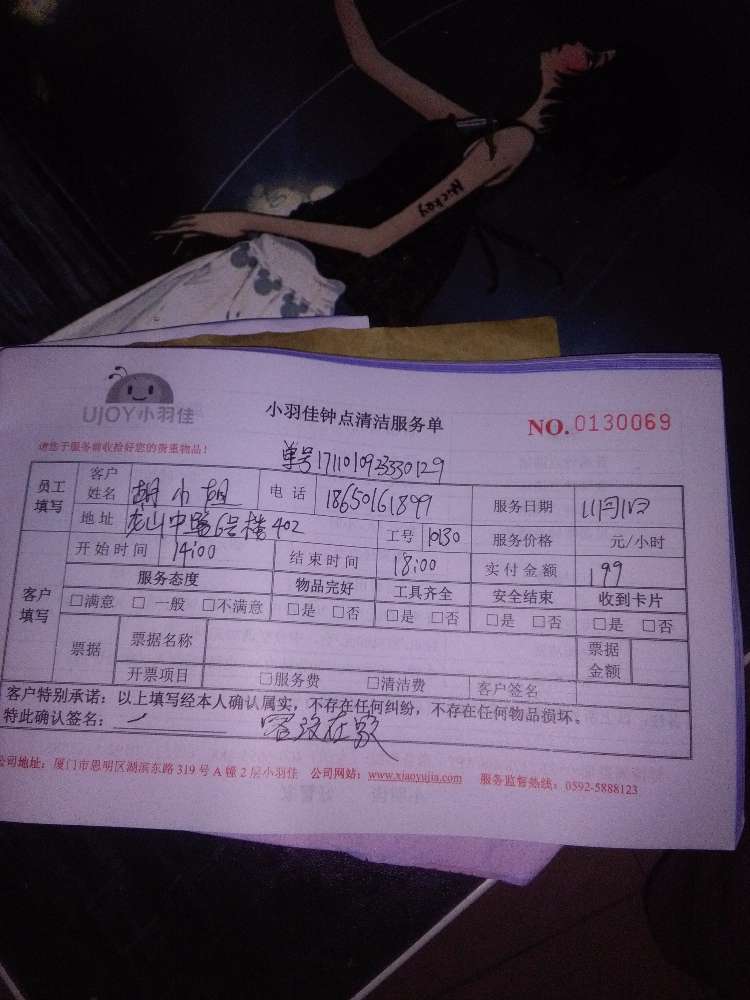 Mickey
UJOY小羽佳
小羽佳钟点清洁服务单
NO.0130069
请您于服务前收拾好您的贵重物品!
单号1711010923330129
员工填写 客户姓名 胡小姐 电话 18650161899 服务日期 11月1日
地址 龙山中路6号楼402 工号 10130 服务价格 元/小时
客户填写 开始时间 14:00 结束时间 18:00 实付金额 199
服务态度 物品完好 工具齐全 安全结束 收到卡片
□满意 □一般 □不满意 □是 □否 □是 □否 □是 □否 □是 □否
票据 票据名称 票据金额
开票项目 □服务费 □清洁费 客户签名
客户特别承诺:以上填写经本人确认属实,不存在任何纠纷,不存在任何物品损坏。
特此确认签名: 客没在家
公司地址:厦门市思明区湖滨东路319号A幢2层小羽佳 公司网站:www.xiaoyujia.com 服务监督热线:0592-5888123